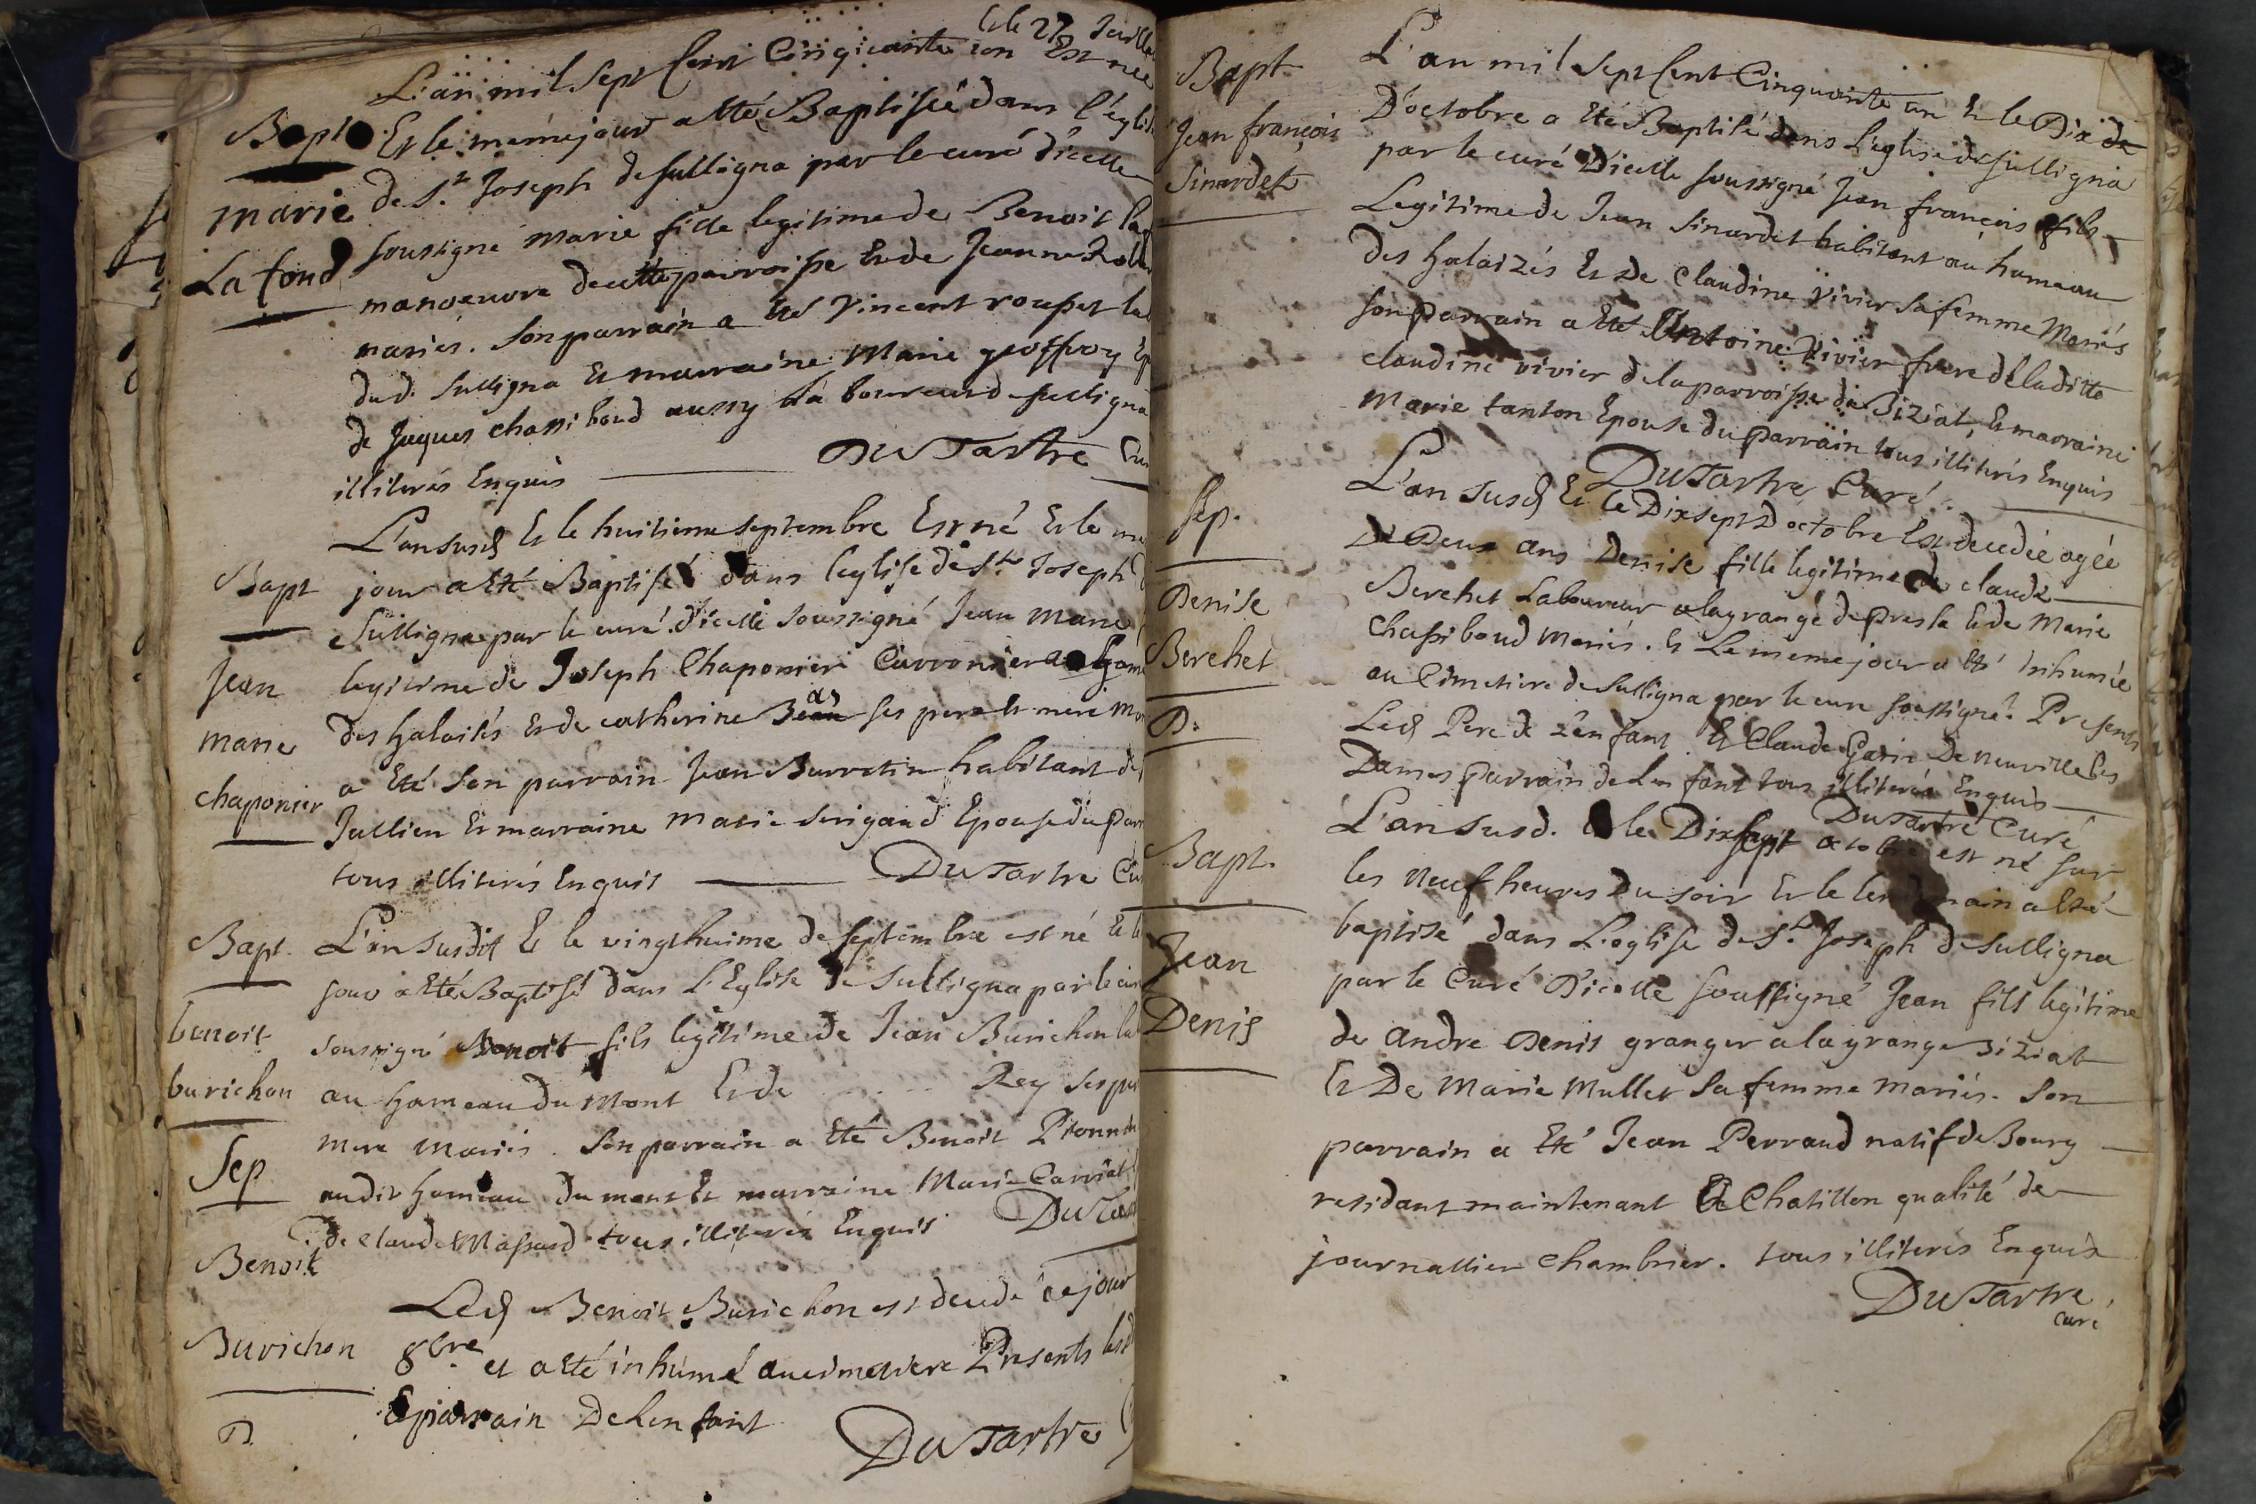 L'an mil Sept Cent Cinquante un Et le 27 Juill
Est née
Bapt. Et le même jour a été Baptisée dans l'égli
marie de St. Joseph de sulligna par le curé d'icelle
La fond soussigné marie fille legitime de Benoit la
manoeuvre de cette parroisse Et de Jeanne
mariés. Son parrain a été Vincent roupet la
dud. Sulligna Et marraine Marie geoffroy Ep
de Jaques chassiboud aussy laboureur de sulligna
illiterés Enquis DuTartre Cu
L'an susd Et le huitieme septembre Est né Et le me
Bapt jour a été Baptisé dans l'eglise de St Joseph
Sulligna par le curé d'icelle soussigné Jean Marie
Jean legitime de Joseph Chaponier
marie des halaisés Et de catherine ses pere et mere M
chaponier a été son parrain Jean Burratin habitant de
Jullien Et marraine Marie Serigaud Epouse du parr
tous illiterés Enquis DuTartre Cu
Bapt. L'an susdit Et le vingthuime de septembre est né Et le
jour a été Baptisé dans L'Eglise de Sulligna par le cur
benoit soussigné Benoit fils legitime de Jean Burichon la
burichon au hameau du Mont Et de Rey ses per
mere mariés. Son parrain a été Benoit
Sep audit hameau du mont Et marraine Marie Carriat
de Claude Massard tous illiterés Enquis DuTar
Benoit
Led Benoit Burichon est decedé ce jour
Burichon 8bre et a été inhumé au cimetiere Presents les d
D. parrain De L'enfant
DuTartre
Bapt. L'an mil Sept Cent Cinquante un Et le Dix de
Jean françois D'octobre a été Baptisé dans L'eglise de sulligna
Sinardet par le curé D'icelle soussigné Jean françois fils
Legitime de Jean Sinardet habitant au hameau
des halaizés Et De Claudine Vivier sa femme Mariés
son parrain a été Antoine Vivier frere de laditte
claudine vivier de la parroisse du Biziat, Et marraine
Marie tanton Epouse du parrain tous illiterés Enquis
DuTartre Curé
Sep. L'an susd Et le Dixsept D'octobre Est decedée agée
De Deux ans Denise fille legitime de claude
Denise Berehet Laboureur a la grange de Presle Et de Marie
Berehet Chassiboud Mariés. Et Le meme jour a été inhumée
au Cimetiere de Sulligna par le curé soussigné. Presents
D. Led Pere de L'enfant Et Claude De neuville les
Dames parrain de L'enfant tous illiterés Enquis
DuTartre Curé
Bapt. L'an susd. Et le Dixsept octobre est né sur
les Neuf heures Du soir Et le lendemain a été
baptisé dans L'eglise de St Joseph de Sulligna
Jean par le Curé D'icelle soussigné Jean fils legitime
Denis de andre Denis granger a la grange Biziat
Et De Marie Mullet sa femme mariés. Son
parrain a été Jean Perraud natif de Bourg
residant maintenant A Chatillon qualité de
journallier chambrier. tous illiterés Enquis
DuTartre
curé